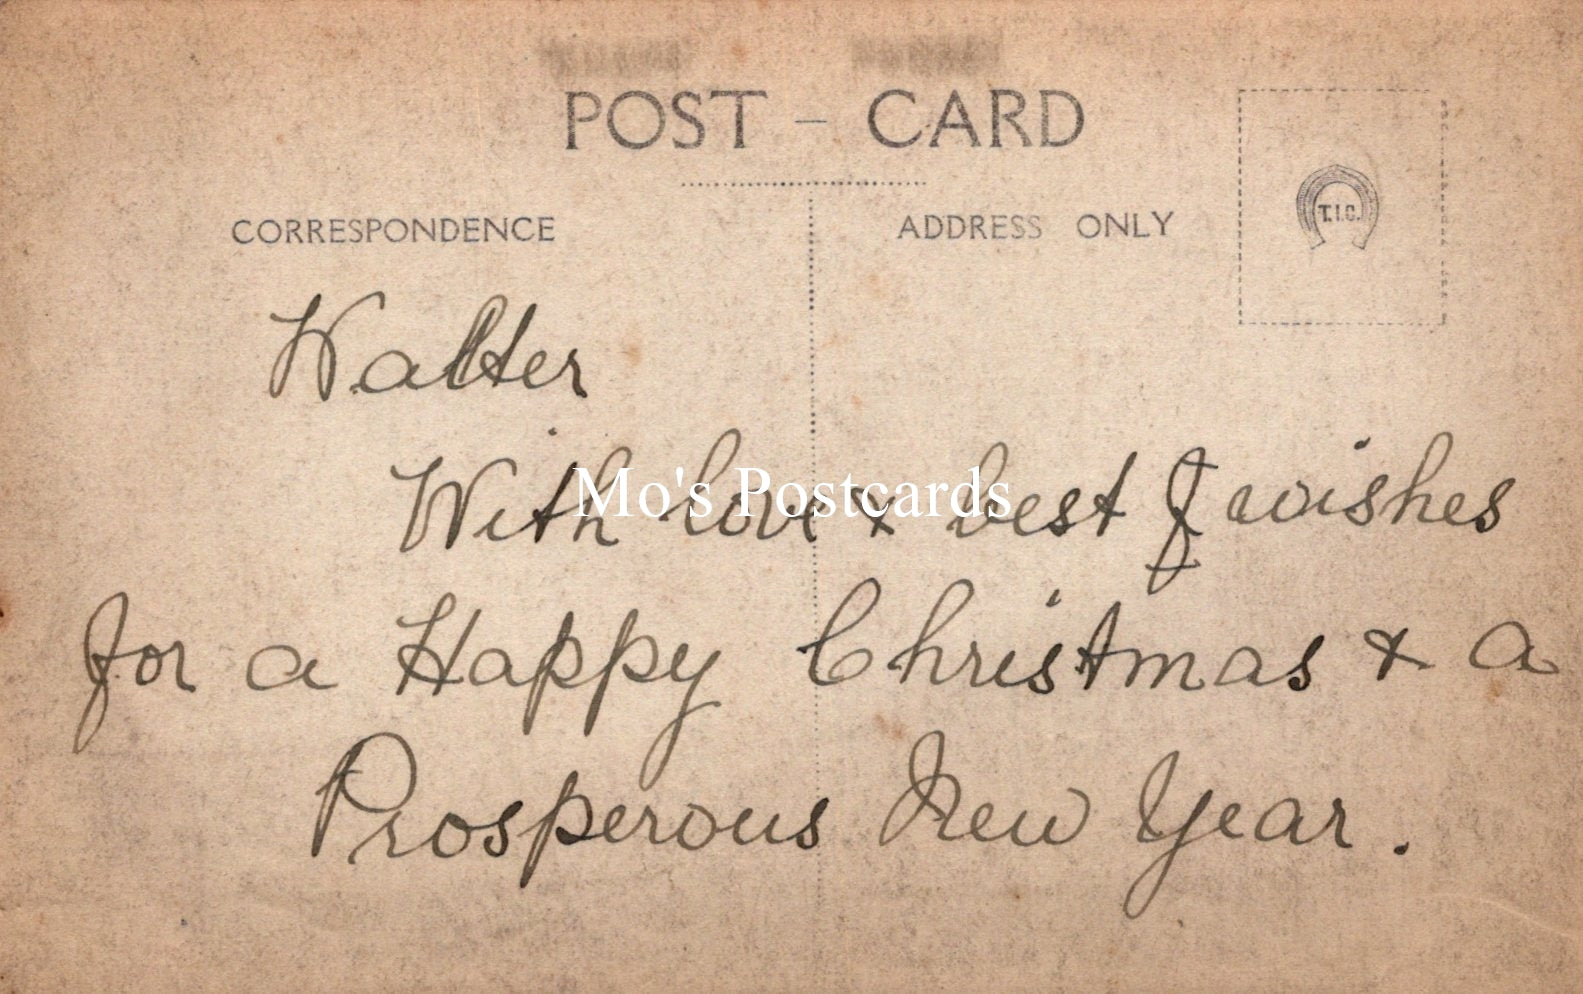 POST - CARD
CORRESPONDENCE
ADDRESS ONLY
T.I.C.
Walter
With love & best wishes
for a Happy Christmas & a
Prosperous New Year.
Mo's Postcards